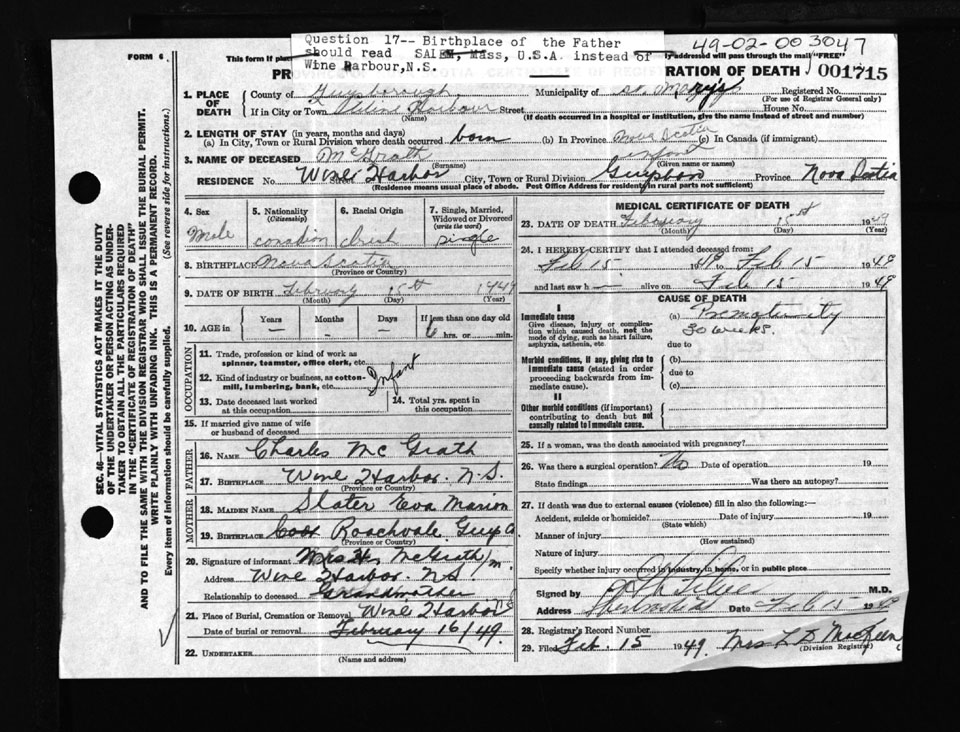 Question 17-- Birthplace of the Father
should read SALEM, Mass, U.S.A. instead of
Wine Harbour, N.S.
49-02-00 3047
FORM 6.
This form if place
ly addressed will pass through the mail "FREE"
PR
RATION OF DEATH
001715
1. PLACE OF DEATH
County of Guysborough
Municipality of St. Mary's
Registered No.
(For use of Registrar General only)
If in City or Town Wine Harbour Street
House No.
(Name)
(If death occurred in a hospital or institution, give the name instead of street and number)
2. LENGTH OF STAY (in years, months and days)
(a) In City, Town or Rural Division where death occurred born
(b) In Province Nova Scotia
(c) In Canada (if immigrant)
3. NAME OF DECEASED McGrath infant
(Surname)
(Given name or names)
RESIDENCE No. Wine Harbor Street
City, Town or Rural Division Guysboro
Province Nova Scotia
(Residence means usual place of abode. Post Office Address for residents in rural parts not sufficient)
4. Sex
Male
5. Nationality
(Citizenship)
canadian
6. Racial Origin
Irish
7. Single, Married,
Widowed or Divorced
(write the word)
single
8. BIRTHPLACE Nova Scotia
(Province or Country)
9. DATE OF BIRTH February 15st 1949
(Month) (Day) (Year)
10. AGE in
Years
Months
Days
If less than one day old
6 hrs. or min.
OCCUPATION
11. Trade, profession or kind of work as
spinner, teamster, office clerk, etc.
12. Kind of industry or business, as cotton-
mill, lumbering, bank, etc.
Infant
13. Date deceased last worked
at this occupation
14. Total yrs. spent in
this occupation
15. If married give name of wife
or husband of deceased
FATHER
16. NAME Charles Mc Grath
17. BIRTHPLACE Wine Harbor. N.S.
(Province or Country)
MOTHER
18. MAIDEN NAME Slater Eva Marion
19. BIRTHPLACE Roachvale Guys Co
(Province or Country)
20. Signature of informant Mrs H. McGrath
Address Wine Harbor. N.S
Relationship to deceased Grandmother
21. Place of Burial, Cremation or Removal Wine Harbor
Date of burial or removal February 16/49.
22. UNDERTAKER
(Name and address)
MEDICAL CERTIFICATE OF DEATH
23. DATE OF DEATH February 15st 1949
(Month) (Day) (Year)
24. I HEREBY CERTIFY that I attended deceased from:
Feb 15 1949 to Feb 15 1949
and last saw h — alive on Feb 15 1949
CAUSE OF DEATH
I
Immediate cause
Give disease, injury or complica-
tion which caused death, not the
mode of dying, such as heart failure,
asphyxia, asthenia, etc.
(a) Prematurity
30 weeks.
due to
Morbid conditions, if any, giving rise to
immediate cause (stated in order
proceeding backwards from im-
mediate cause).
(b)
due to
(c)
II
Other morbid conditions (if important)
contributing to death but not
causally related to immediate cause.
25. If a woman, was the death associated with pregnancy?
26. Was there a surgical operation? No Date of operation 19
State findings Was there an autopsy?
27. If death was due to external causes (violence) fill in also the following:—
Accident, suicide or homicide? Date of injury 19
(State which)
Manner of injury
(How sustained)
Nature of injury
Specify whether injury occurred in industry, in home, or in public place
Signed by M.D.
Address Date Feb 15 1949
28. Registrar's Record Number
29. Filed Feb. 15 1949. Miss L D MacKeen
(Division Registrar)
SEC. 46—VITAL STATISTICS ACT MAKES IT THE DUTY
OF THE UNDERTAKER OR PERSON ACTING AS UNDER-
TAKER TO OBTAIN ALL THE PARTICULARS REQUIRED
IN THE "CERTIFICATE OF REGISTRATION OF DEATH"
AND TO FILE THE SAME WITH THE DIVISION REGISTRAR WHO SHALL ISSUE THE BURIAL PERMIT.
WRITE PLAINLY WITH UNFADING INK. THIS IS A PERMANENT RECORD.
Every item of information should be carefully supplied. (See reverse side for instructions.)